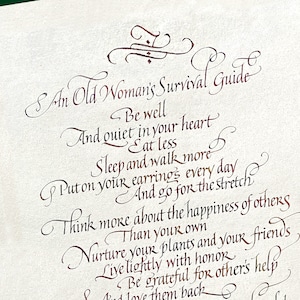 An Old Woman's Survival Guide
Be well
And quiet in your heart
Eat less
Sleep and walk more
Put on your earrings every day
And go for the stretch
Think more about the happiness of others
Than your own
Nurture your plants and your friends
Live lightly with honor
Be grateful for other's help
And love them back